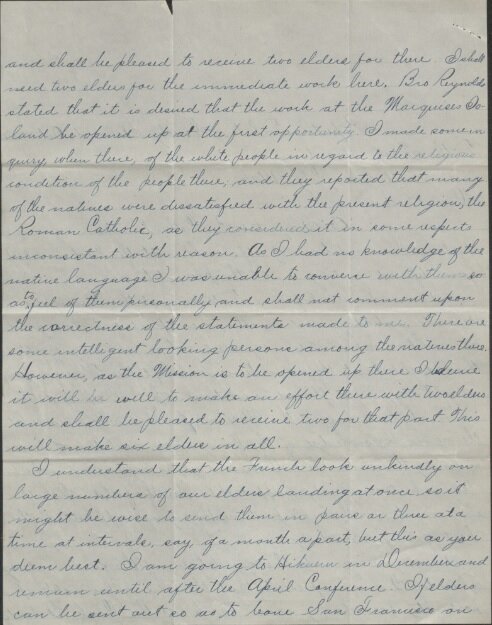 and shall be pleased to receive two elders for there. I shall
need two elders for the immediate work here. Bro Reynolds
stated that it is desired that the work at the Marquises Is-
land be opened up at the first opportunity I made some in
quiry, when there, of the white people in regard to the religious
condition of the people there, and they reported that many
of the natives were dissatisfied with the present religion, the
Roman Catholic, as they considered it in some respects
inconsistant with reason. As I had no knowledge of the
native language I was unable to converse with them so
as to feel of them personally and shall not comment upon
the correctness of the statements made to me. There are
some intelligent looking persons among the natives there.
However, as the Mission is to be opened up there I believe
it will be well to make an effort there with two elders
and shall be pleased to receive two for that part This
will make six elders in all.
I understand that the French look unkindly on
large numbers of our elders landing at once, so it
might be wise to send them in pairs or three at a
time at intervals, say, of a month apart, but this as you
deem best. I am going to Hikueru in December and
remain until after the April Conference. If elders
can be sent out so as to leave San Francisco on